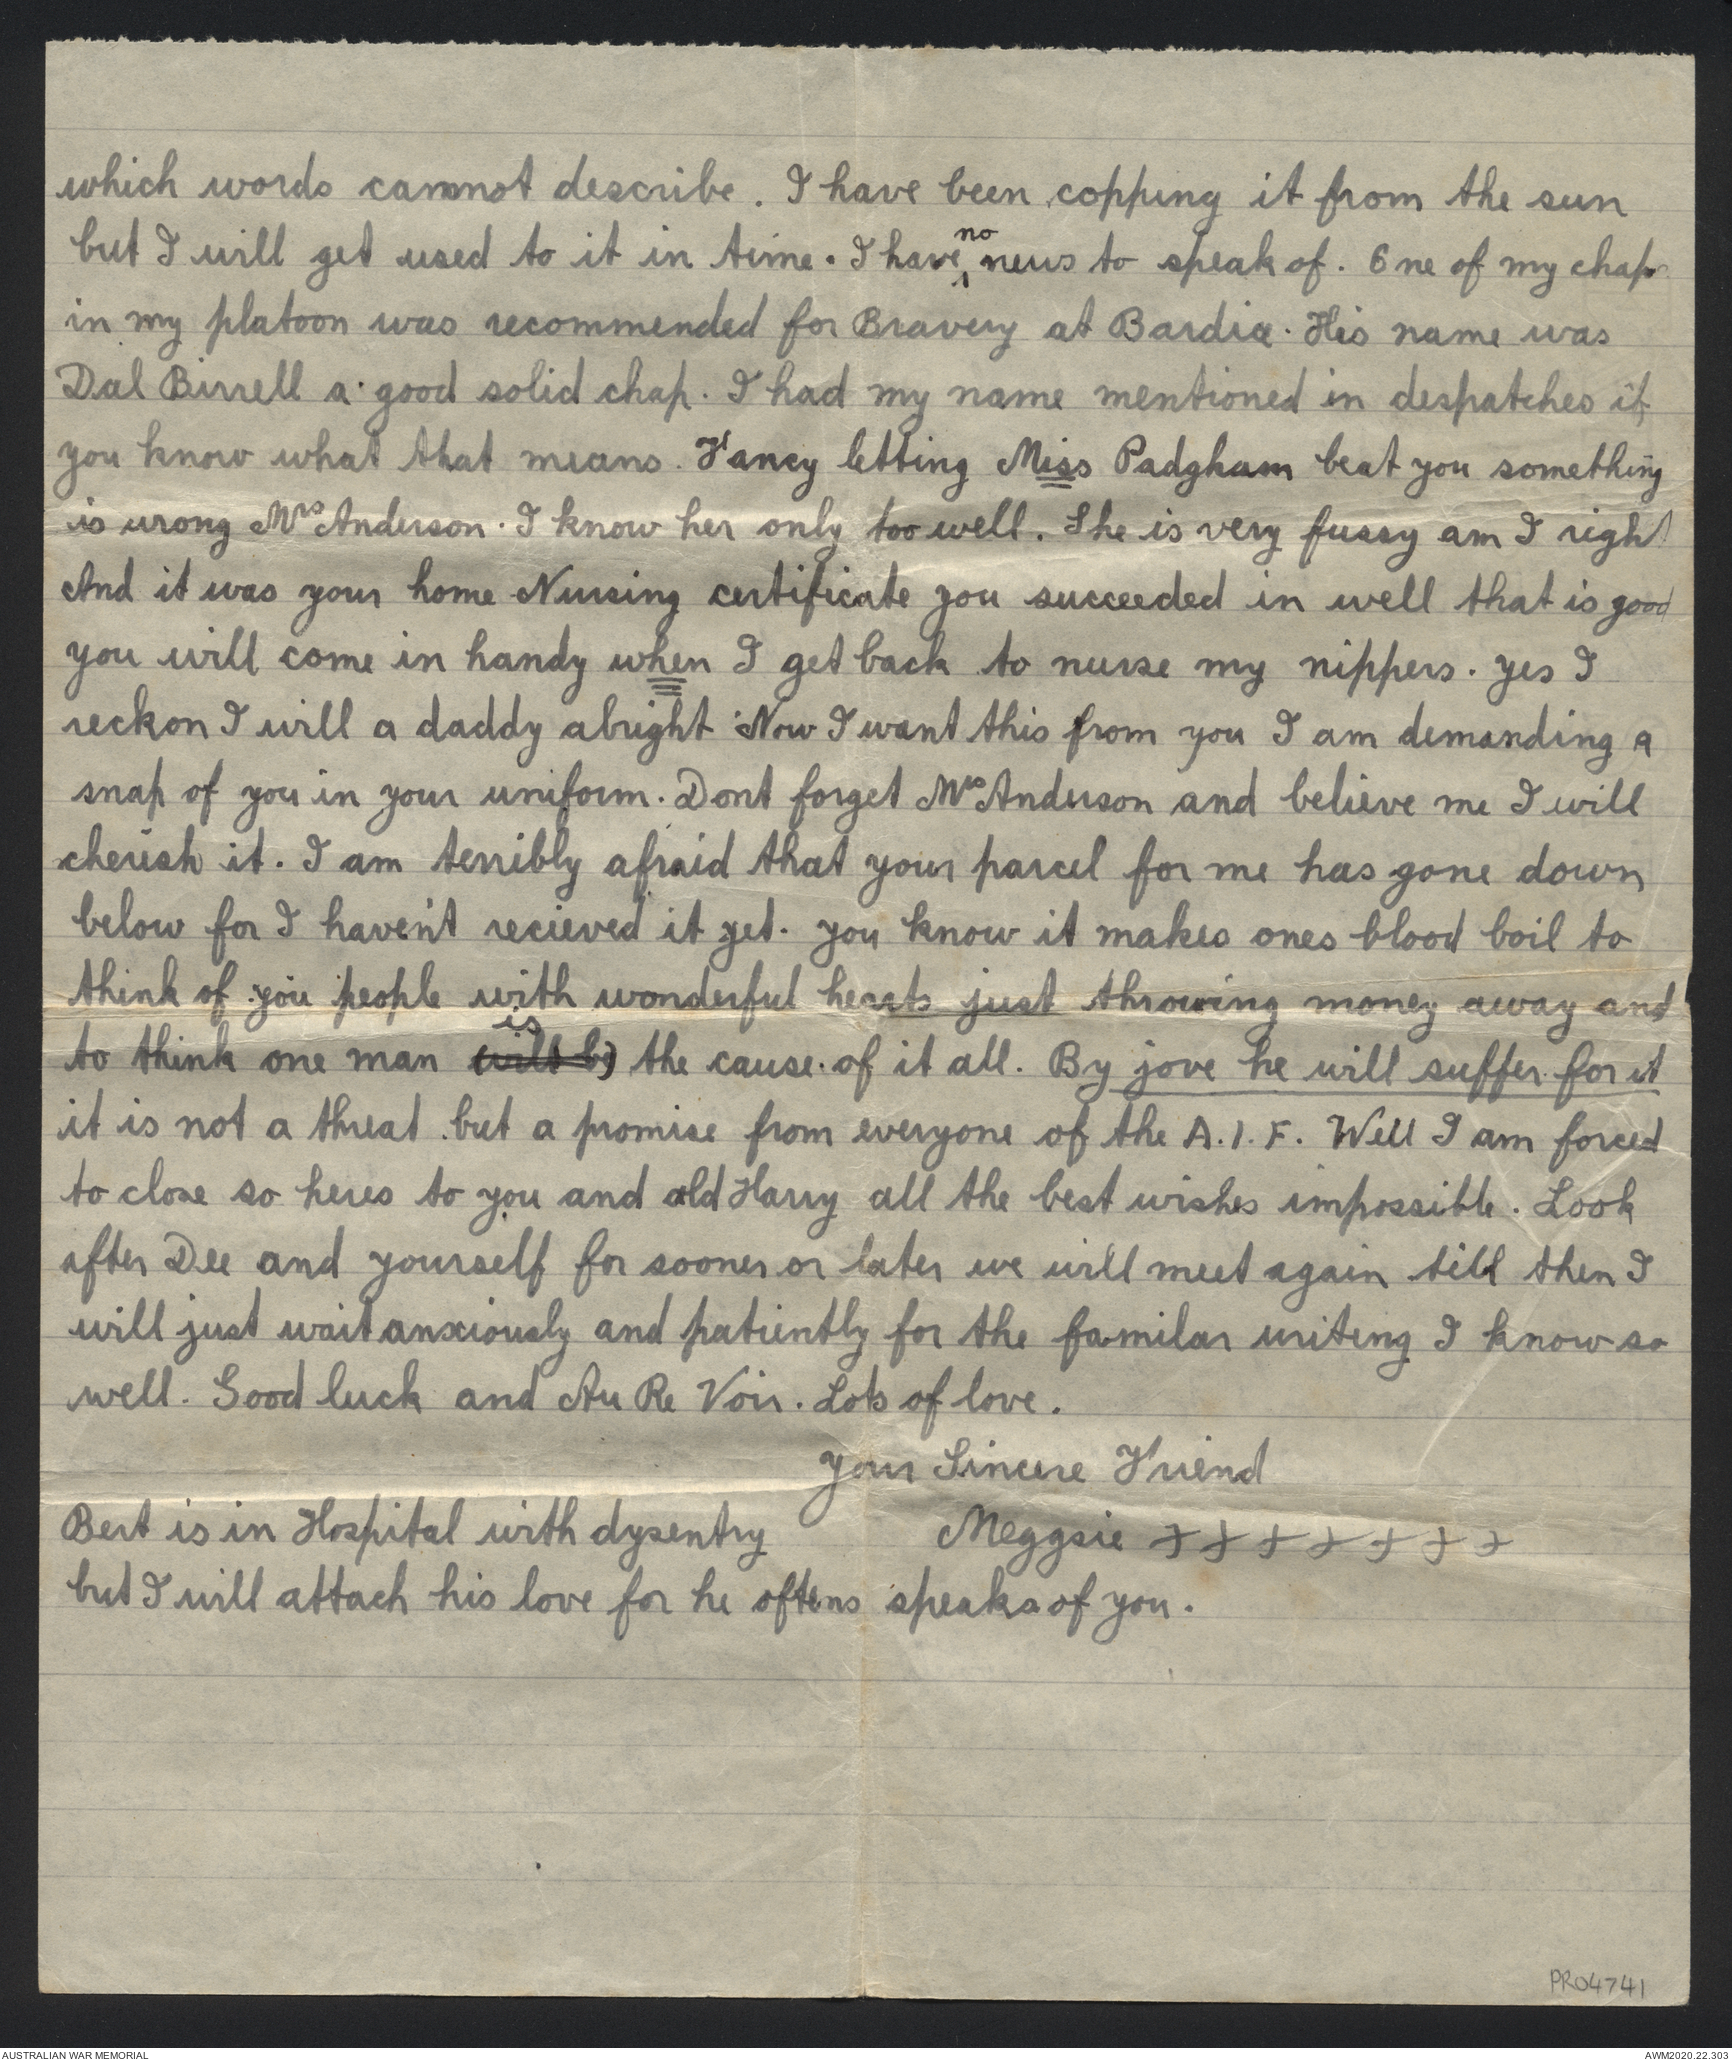 which words cannot describe. I have been copping it from the sun
but I will get used to it in time. I have no news to speak of. One of my chaps
in my platoon was recommended for Bravery at Bardia. His name was
Dal Birrell a good solid chap. I had my name mentioned in despatches if
you know what that means. Fancy letting Miss Padgham beat you something
is wrong Mrs Anderson. I know her only too well. She is very fussy am I right
And it was your home Nursing certificate you succeeded in well that is good
you will come in handy when I get back to nurse my nippers. yes I
reckon I will a daddy alright Now I want this from you I am demanding a
snap of you in your uniform. Dont forget Mrs Anderson and believe me I will
cherish it. I am terribly afraid that your parcel for me has gone down
below for I haven't recieved it yet. you know it makes ones blood boil to
think of you people with wonderful hearts just throwing money away and
to think one man (will be) is the cause of it all. By jove he will suffer for it
it is not a threat but a promise from everyone of the A.I.F. Well I am forced
to close so heres to you and old Harry all the best wishes impossible. Look
after Dee and yourself for sooner or later we will meet again till then I
will just wait anxiously and patiently for the familar writing I know so
well. Good luck and Au Re Voir. Lots of love.
your Sincere Friend
Meggsie xxxxxxx
Bert is in Hospital with dysentry
but I will attach his love for he oftens speaks of you.
PR04741
AUSTRALIAN WAR MEMORIAL
AWM2020.22.303